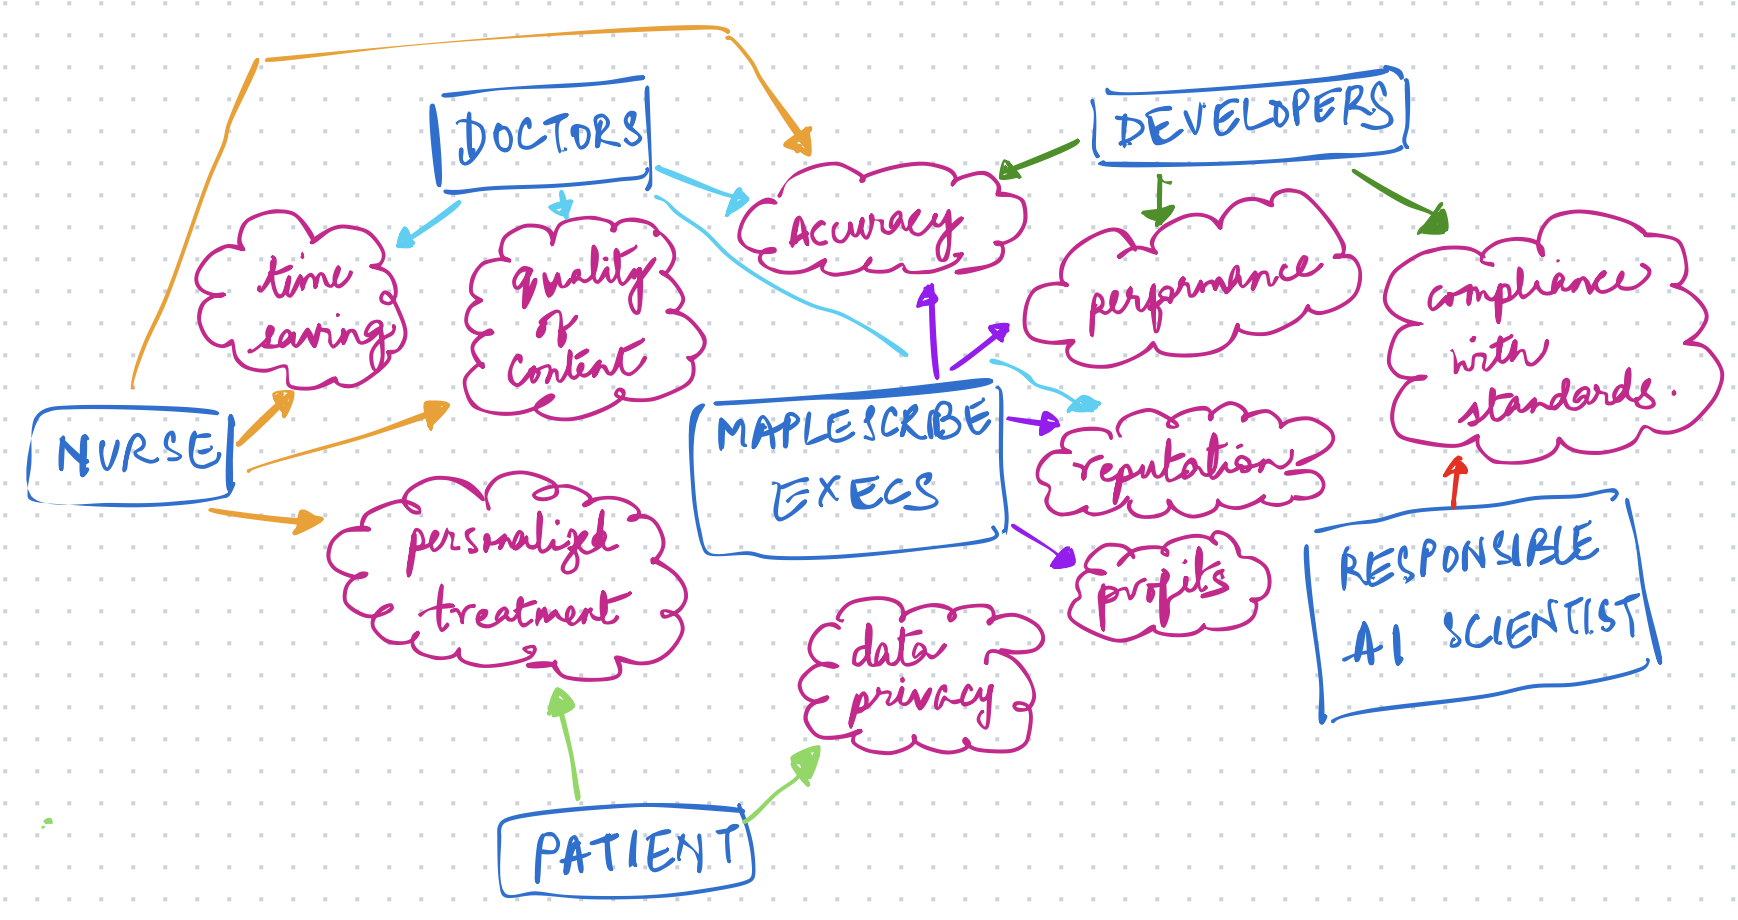 DOCTORS
DEVELOPERS
Accuracy
time
saving
quality
of
content
performance
compliance
with
standards.
NURSE
MAPLESCRIBE
EXECS
reputation
personalized
treatment
profits
RESPONSIBLE
AI SCIENTIST
data
privacy
PATIENT